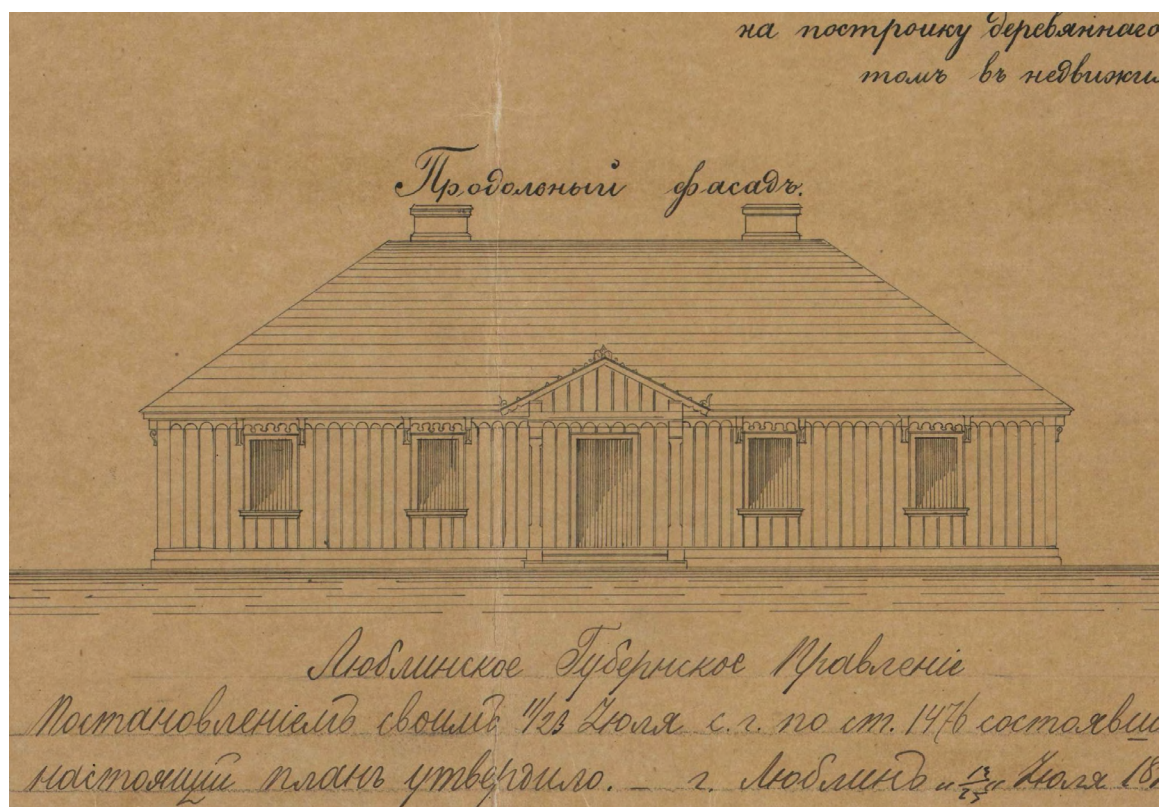 на постройку деревяннаго
томъ въ недвижи
Продольный фасадъ.
Люблинское Губернское Правленіе
Постановленіемъ своимъ 11/23 Іюля с. г. по ст. 1476 состоявш
настоящій планъ утвердило. – г. Люблинъ „ 13/25 „ Іюля 18